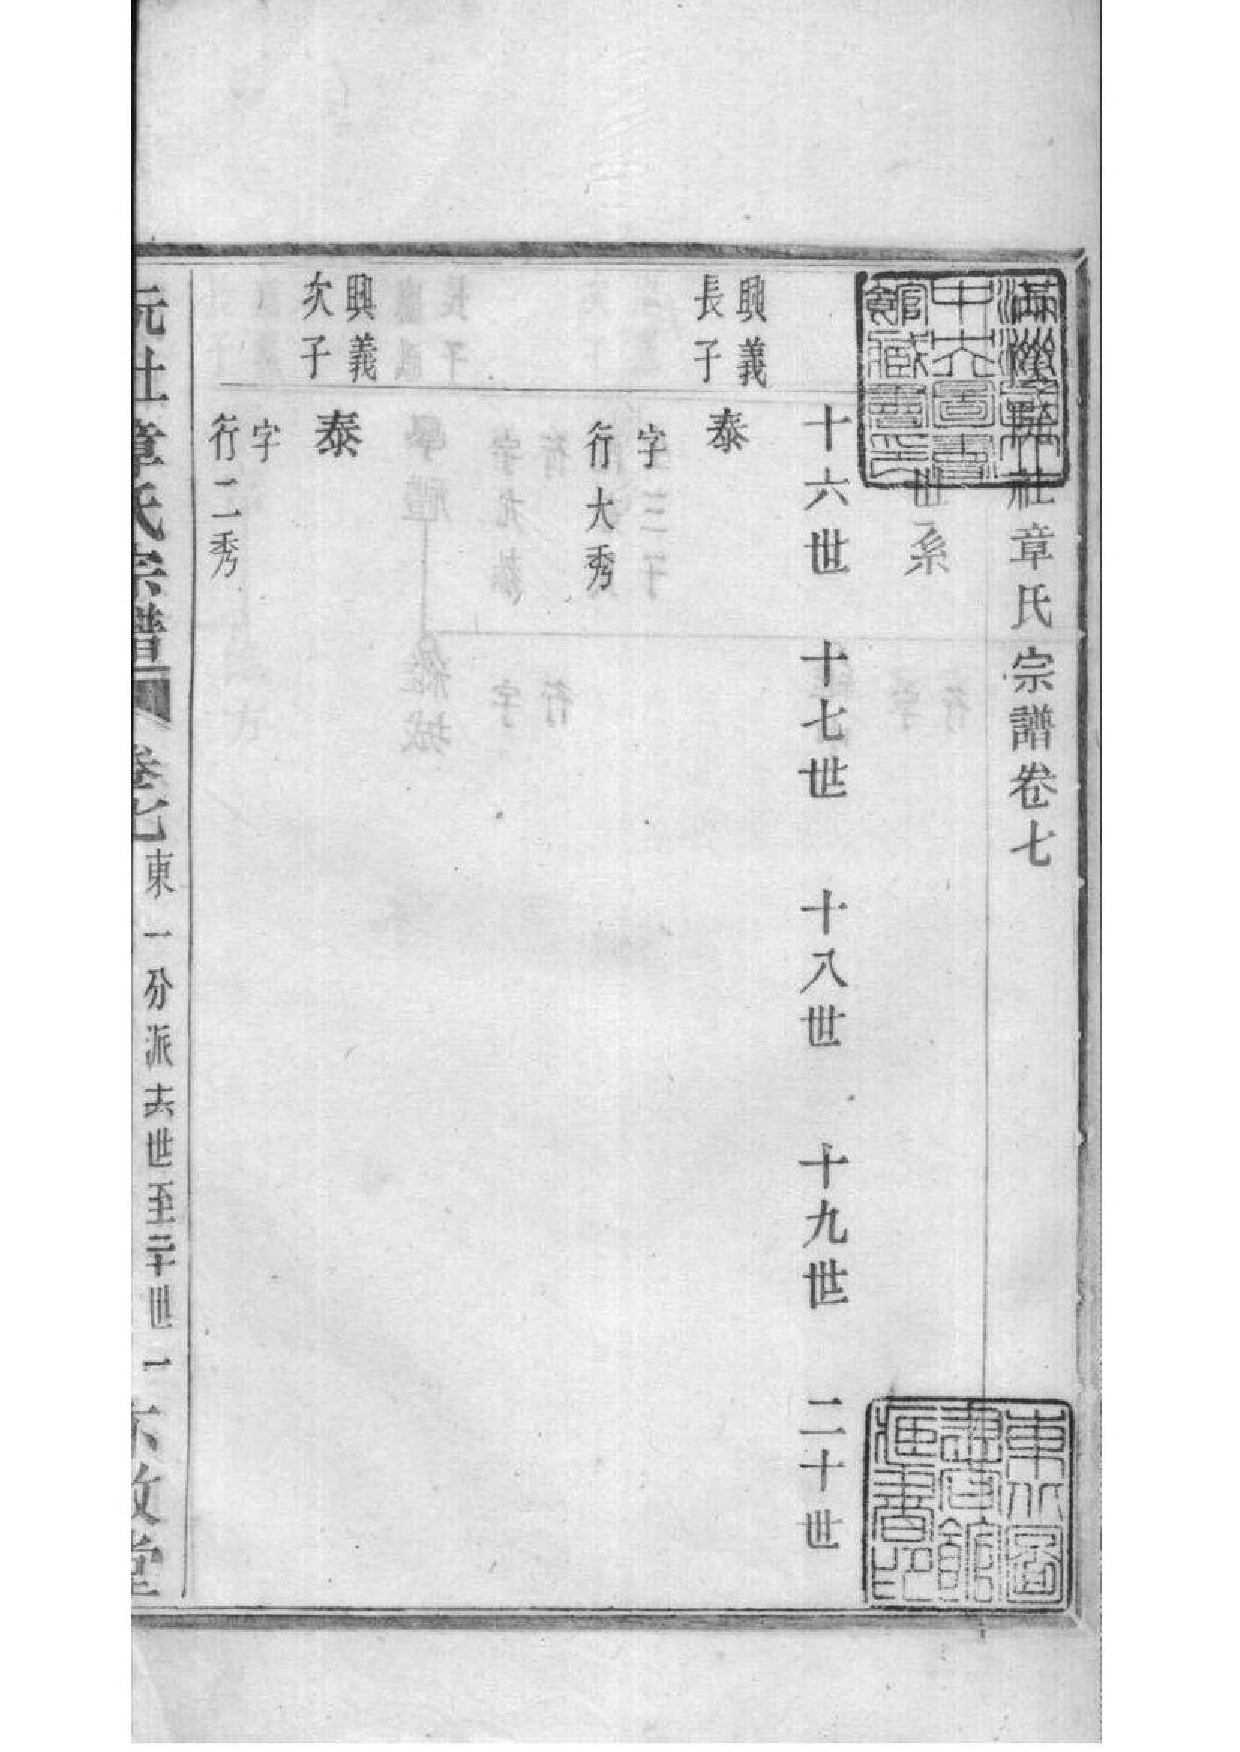 社章氏宗譜卷七
世系
十六世 十七世 十八世 十九世 二十世
興義
長子
泰
字
行大秀
興義
次子
泰
字
行二秀
阮社章氏宗譜 卷七 東一分派 十六世至二十世 一 六敬堂
滿洲帝國
中央圖書
館藏書印
東北圖
書館
藏書印